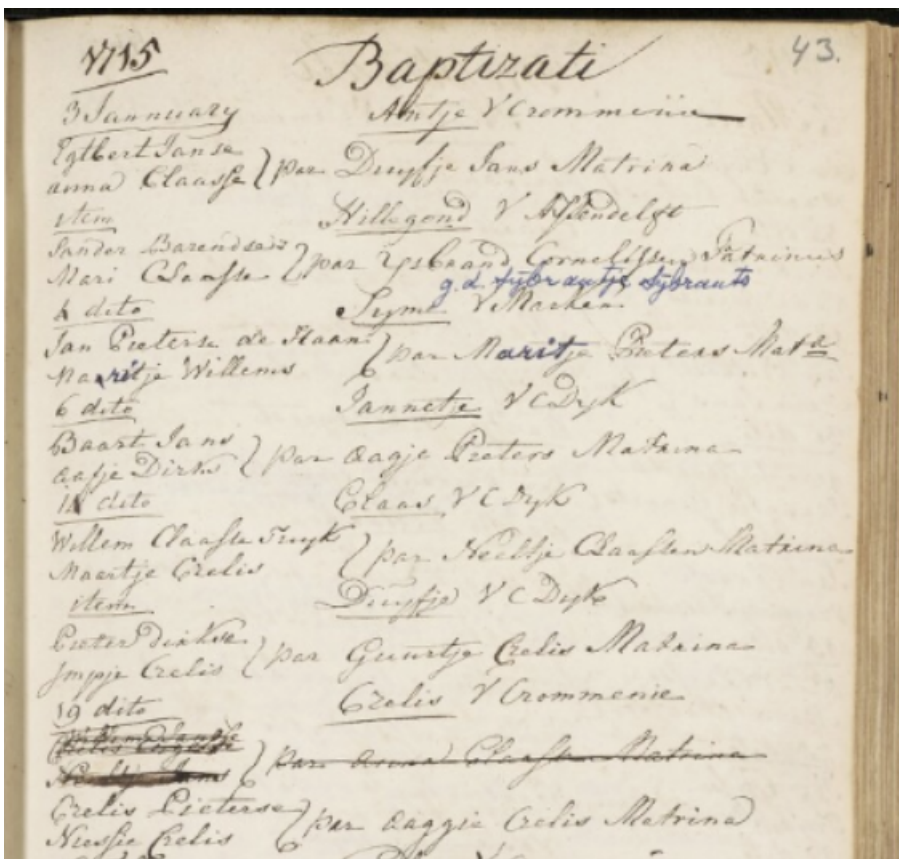 1715 Baptizati 43.
3 Jannuary Antje V Crommenie
Egtbert Janse
anna Claasse } par Duyfje Jans Matrina
item Hillegond V Assendelft
Sander Barendsen
Mari Claasse } par Ysbrand Cornelissen Patrinus
g.d. Sybrantje Sybrants
4 dito Syme V Marken
Jan Pieterse de Haan
Maritje Willems } par Maritje Pieters Mata
6 dito Jannetje V C Dyk
Baart Jans
aafje Dirks } par aagje Pieters Matrina
14 dito Claas V C Dyk
Willem Claasse
Maertje Crelis } par Neeltje Claassen Matrina
item Duyfje V C Dyk
Pieter Dirkse
Jmpje Crelis } par Guurtje Crelis Matrina
19 dito Crelis V Crommenie
par anna Claassen Matrina
Crelis Pieterse
Niesje Crelis } par aaggie Crelis Matrina